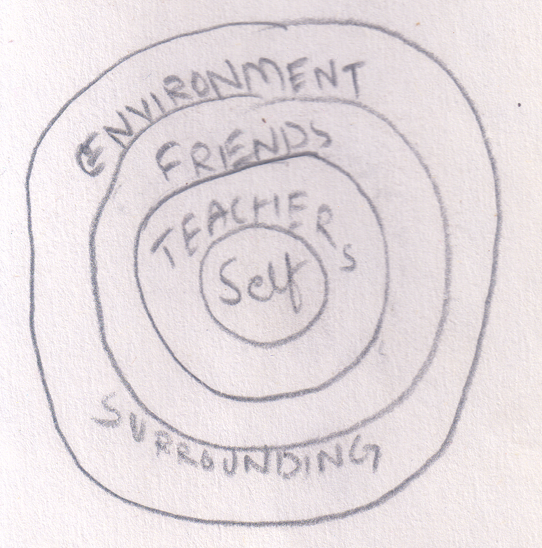 ENVIRONMENT
FRIENDS
TEACHERS
Self
SURROUNDING